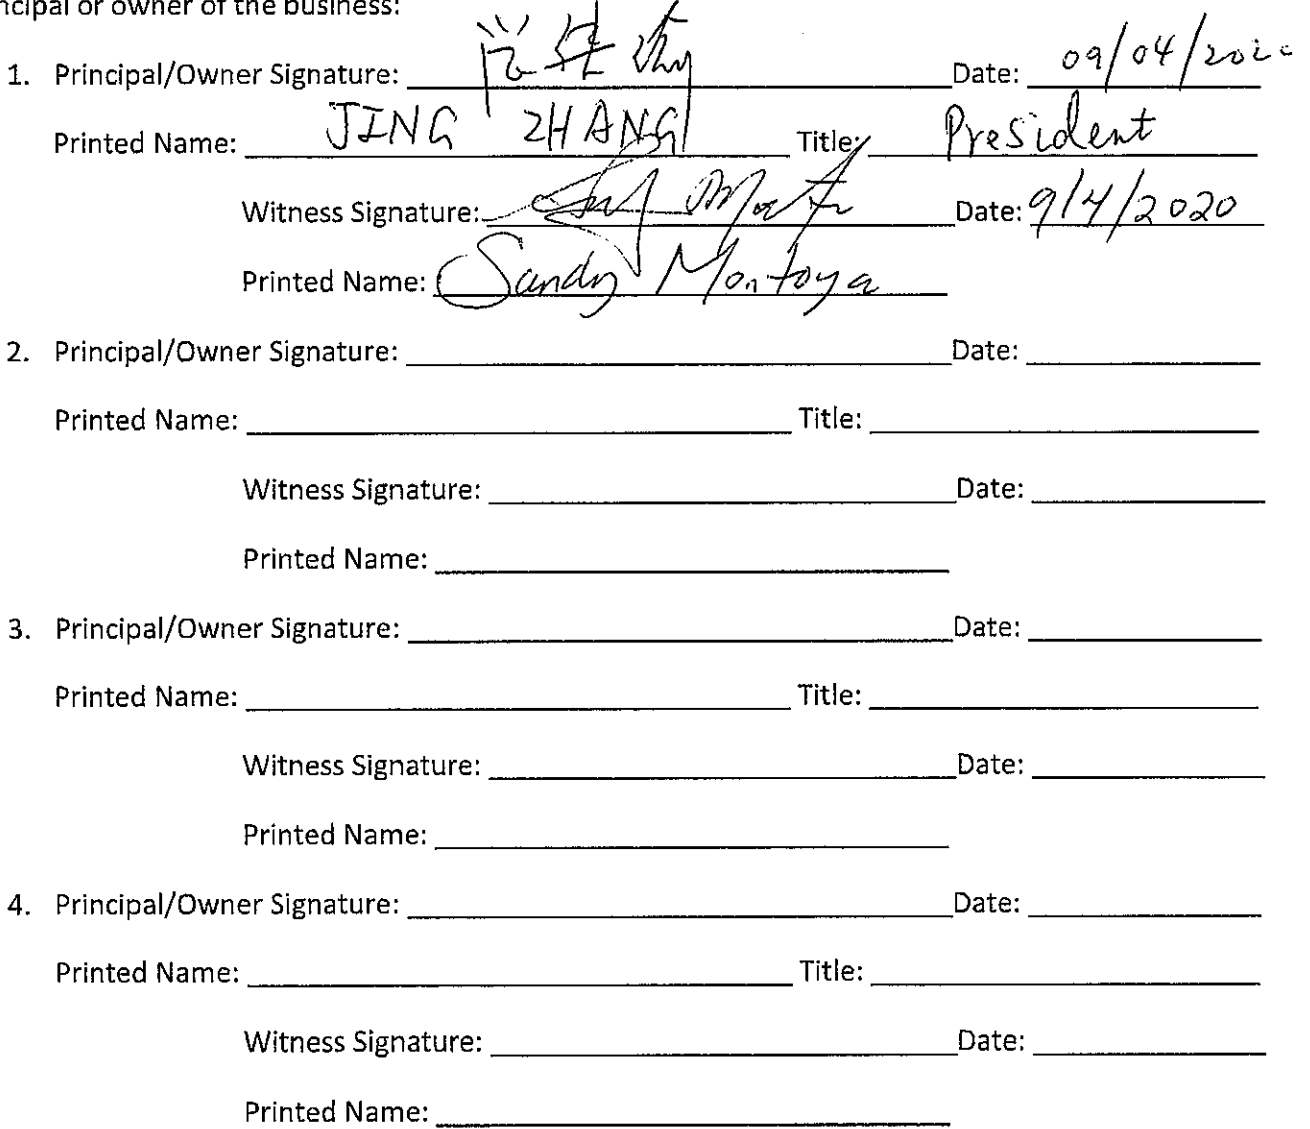 ncipal or owner of the business:
1. Principal/Owner Signature: Date: 09/04/2020
Printed Name: JING ZHANG Title: President
Witness Signature: Date: 9/4/2020
Printed Name: Sandy Montoya
2. Principal/Owner Signature: Date:
Printed Name: Title:
Witness Signature: Date:
Printed Name:
3. Principal/Owner Signature: Date:
Printed Name: Title:
Witness Signature: Date:
Printed Name:
4. Principal/Owner Signature: Date:
Printed Name: Title:
Witness Signature: Date:
Printed Name: